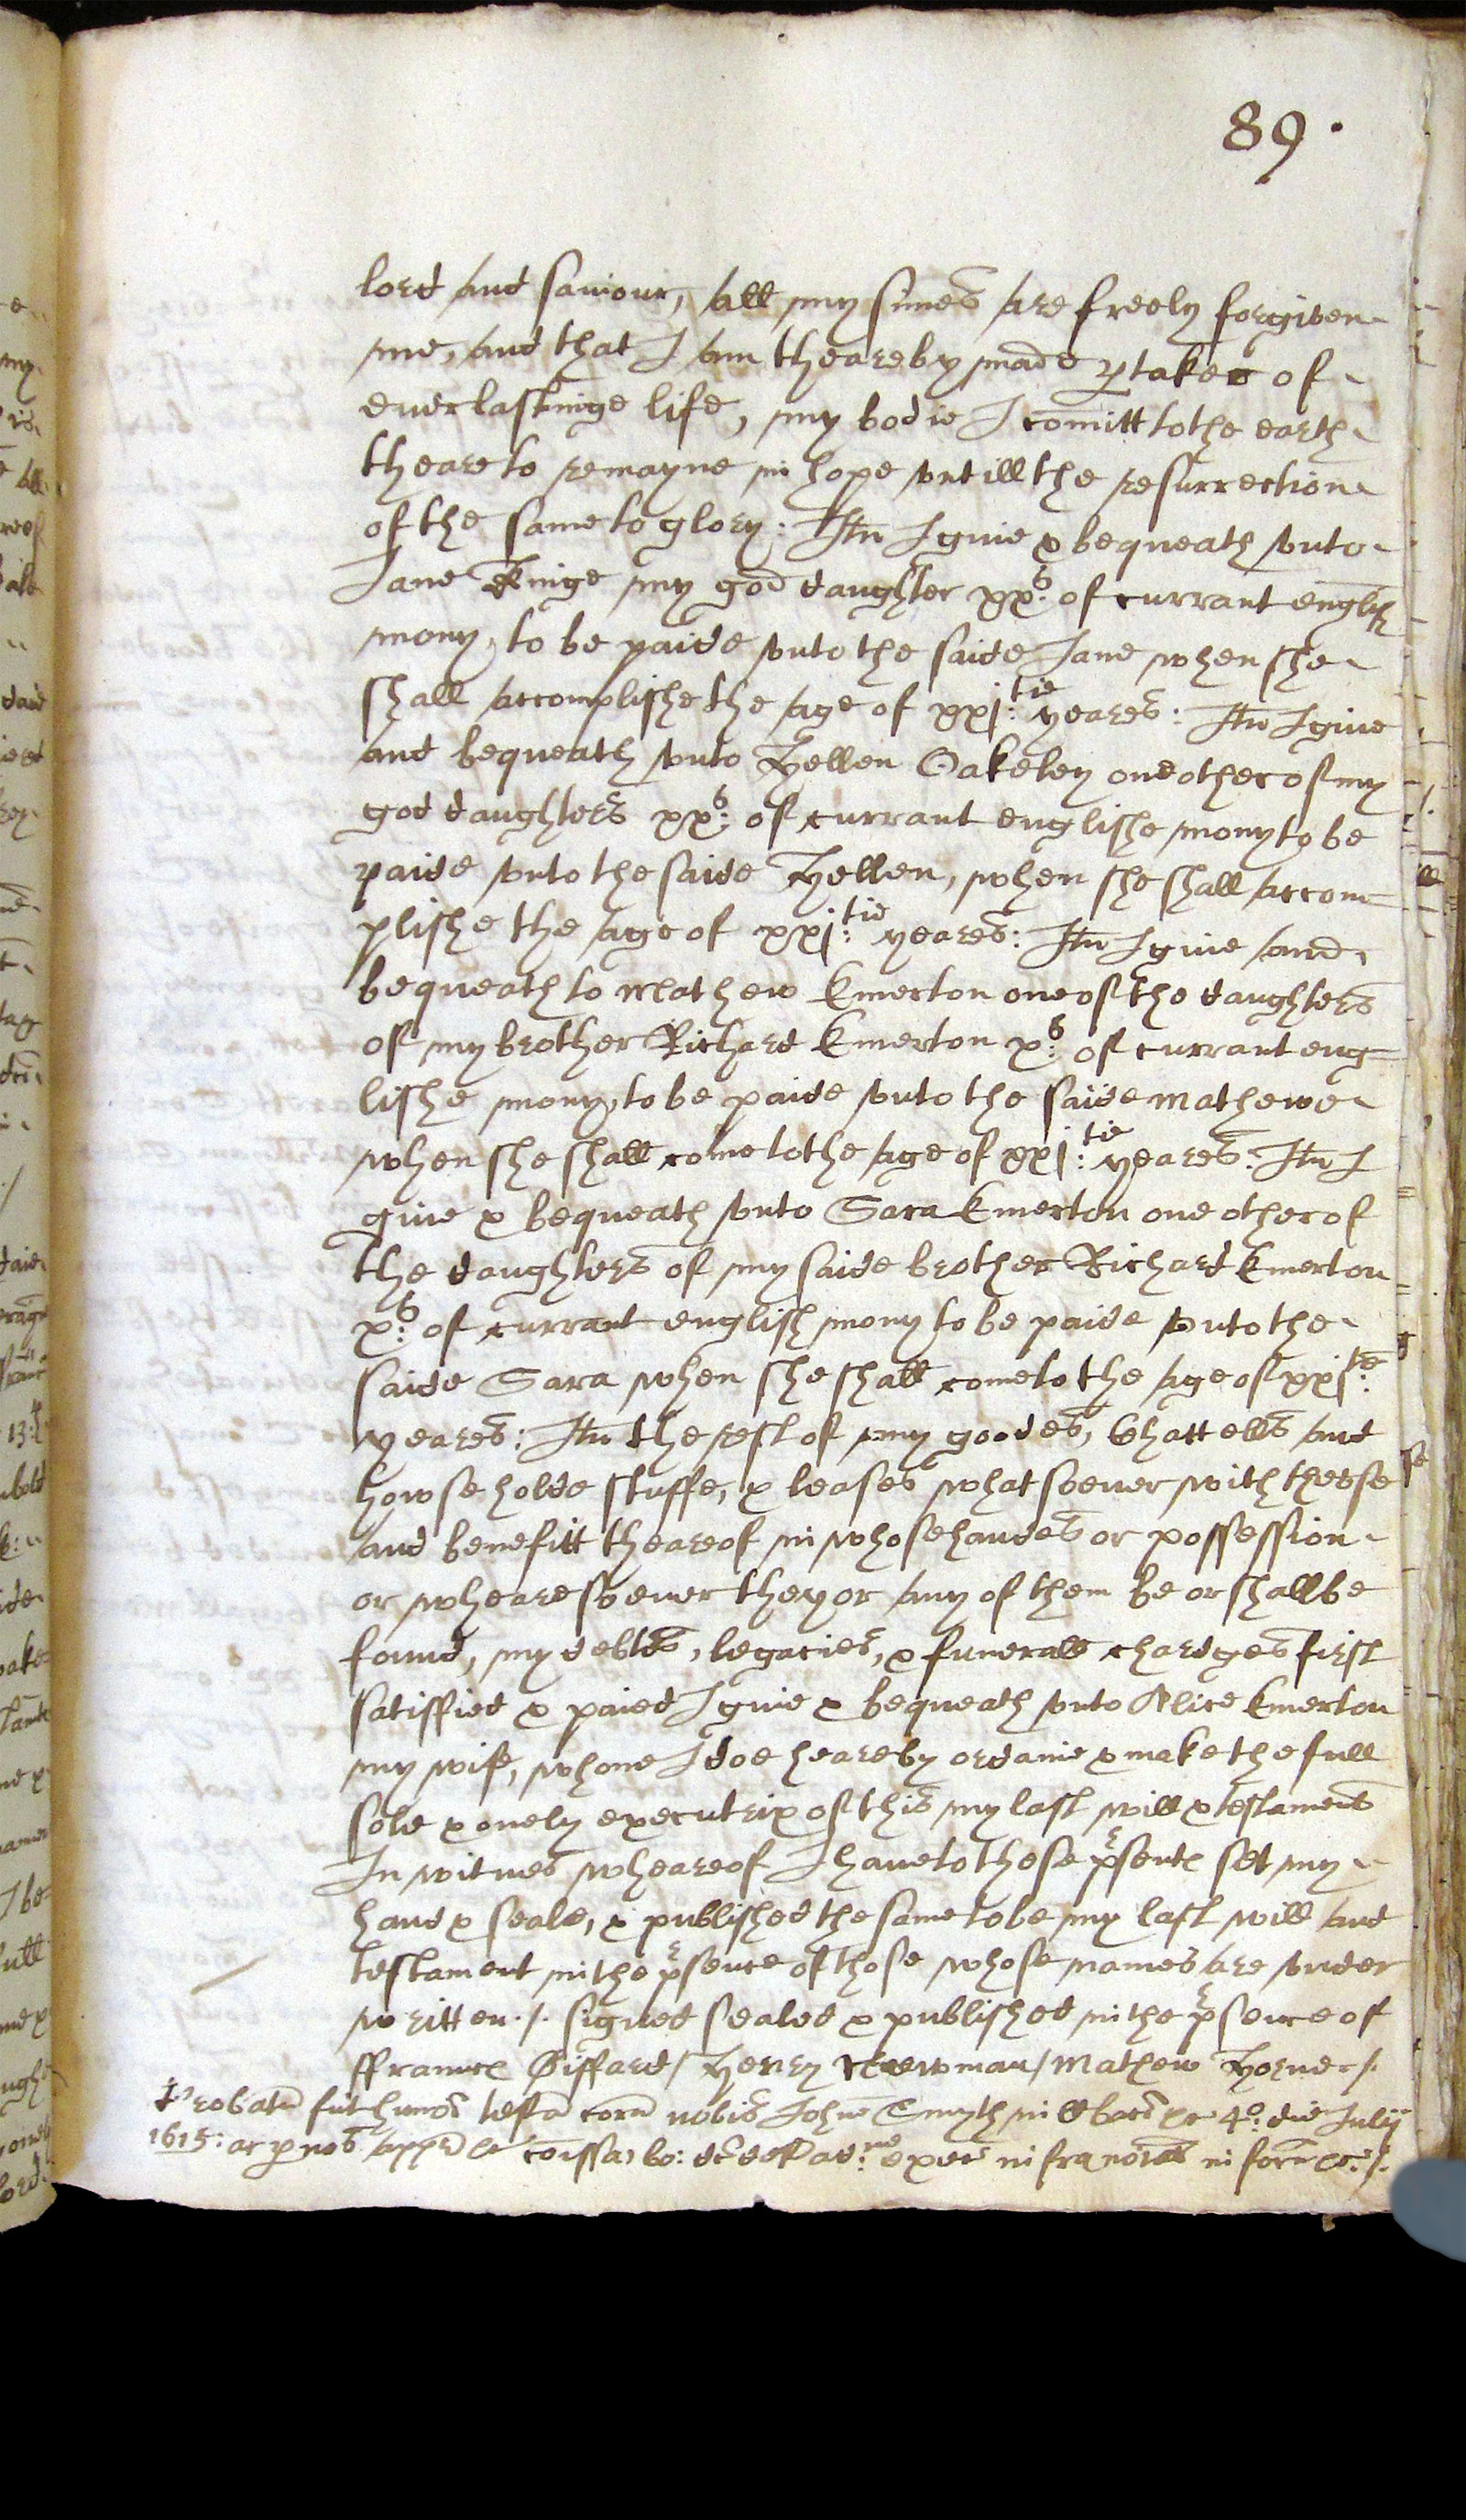 89.
lord and saviour, all my sinnes are freely forgiven
me, and that I am theareby made ptaker of
everlastinge life, my bodie I comitt to the earth
theare to remayne in hope untill the resurrection
of the same to glory: Itm I give & bequeath unto
Jane Kinge my god daughter xxs. of currant english
mony, to be paide unto the saide Jane when she
shall accomplishe the age of xxj:tie yeares: Itm I give
and bequeath unto Hellen Oakeley one other of my
god daughters xxs. of currant englishe mony to be
paide unto the saide Hellen, when she shall accom=
plishe the age of xxj:tie yeares: Itm I give and
bequeath to Mathew Emerton one of the daughters
of my brother Richard Emerton xs. of currant eng=
lishe mony, to be paide unto the saide Mathewe
when she shall come to the age of xxj:tie yeares: Itm I
give & bequeath unto Sara Emerton one other of
the daughters of my saide brother Richard Emerton
xs. of currant english mony to be paide unto the
saide Sara when she shall come to the age of xxj:te
yeares: Itm the rest of my goodes, Chattells and
howseholde stuffe, & leases whatsoever with the use
and benefitt theareof in whose handes or possession
or whearesoever they or any of them be or shall be
found, my debtes, legacies, & funerall chardges first
satisffied & paied I give & bequeath unto Alice Emerton
my wife, whome I doe heareby ordaine & make the full
sole & onely executrix of this my last will & testament
In witnes wheareof I have to these psentes set my
hand & seale, & published the same to be my last will and
testament in the psence of those whose names are under
written./. signed sealed & published in the psence of
ffraunces Giffard / Henry Newman / Mathew Horne ./.
Probatu fuit hmoi testa cora nobis Johne Smyth in 4o: die Julij
1615: ac p nos appr &c comissa) bo: dc def ad: exec in fra noiat in forma &c./.